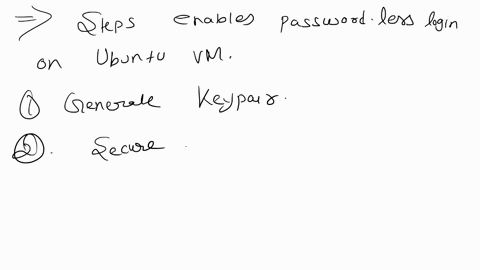 ⇒ Steps enables password-less login
on Ubuntu VM.
① Generate Keypair.
②. Secure